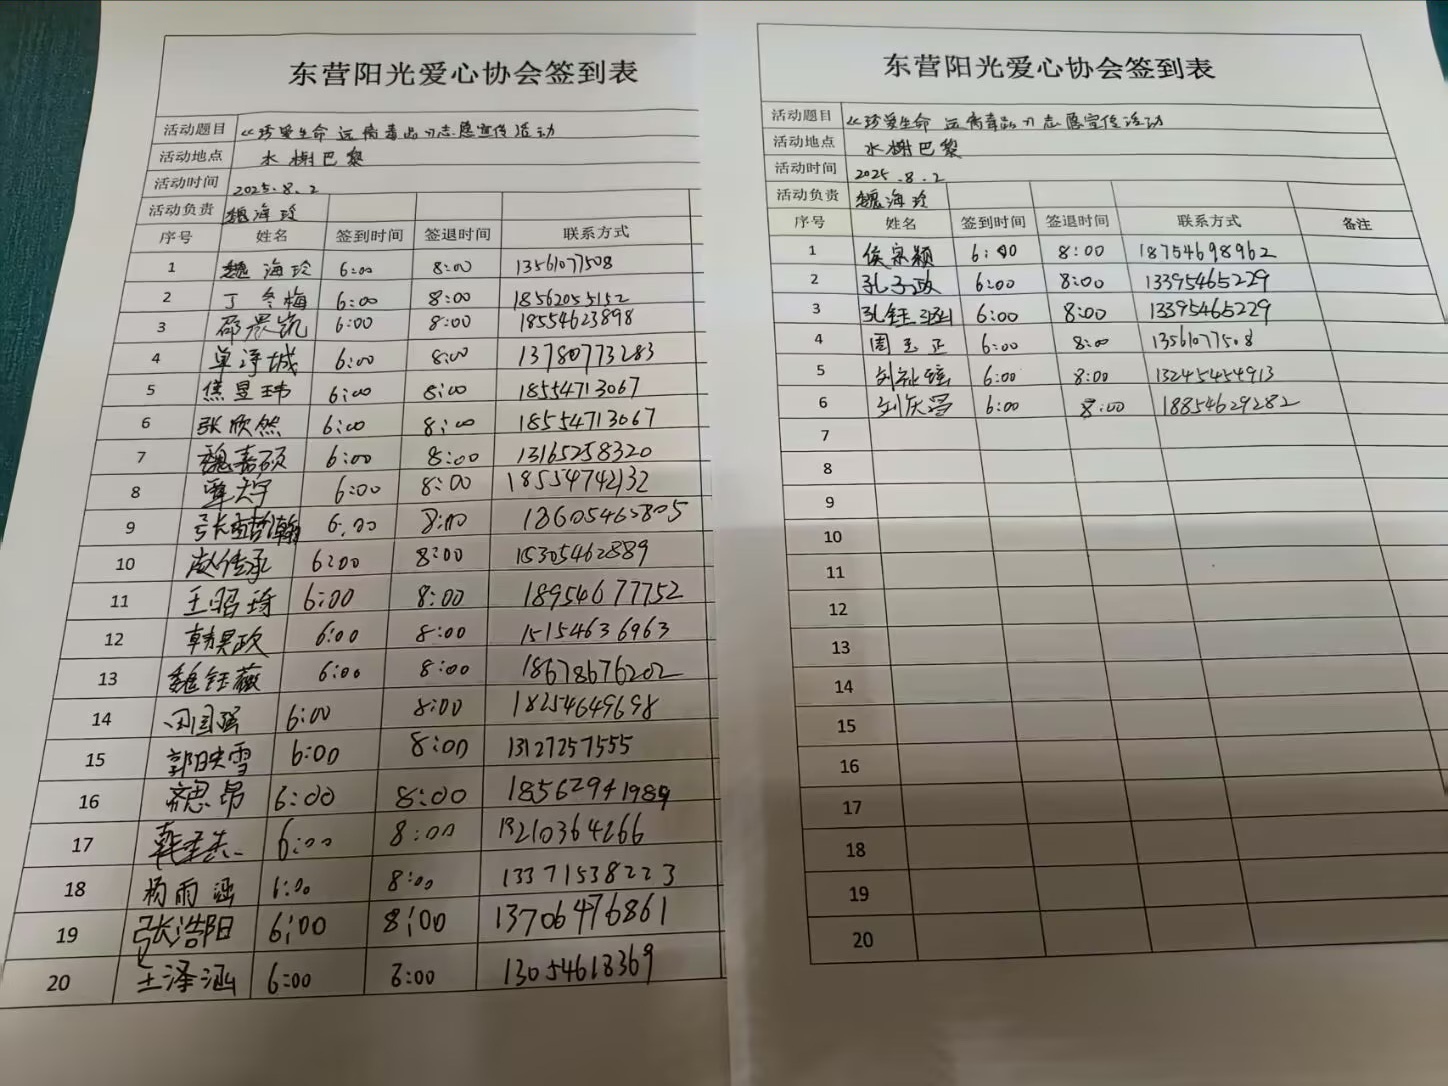 东营阳光爱心协会签到表
活动题目 《珍爱生命 远离毒品》志愿宣传活动
活动地点 水榭巴黎
活动时间 2025.8.2
活动负责 魏海玲
序号 姓名 签到时间 签退时间 联系方式
1 魏海玲 6:00 8:00 13561077508
2 丁冬梅 6:00 8:00 18562055152
3 邵景岚 6:00 8:00 18554623898
4 单淳城 6:00 8:00 13780773283
5 焦昱玮 6:00 8:00 18554713067
6 张欣然 6:00 8:00 18554713067
7 魏嘉硕 6:00 8:00 13165258320
8 覃大宇 6:00 8:00 18554742132
9 张翰 6:00 8:00 18605465805
10 赵传承 6:00 8:00 15305462889
11 王昭琦 6:00 8:00 18954677752
12 韩昊政 6:00 8:00 15154636963
13 魏钰薇 6:00 8:00 18678676202
14 田国强 6:00 8:00 18254649698
15 郭映雪 6:00 8:00 13127257555
16 昂 6:00 8:00 18562941989
17 韩圣杰 6:00 8:00 13210364266
18 杨雨涵 6:00 8:00 13371538223
19 张浩阳 6:00 8:00 13706476861
20 王泽涵 6:00 8:00 13054618369
东营阳光爱心协会签到表
活动题目 《珍爱生命 远离毒品》志愿宣传活动
活动地点 水榭巴黎
活动时间 2025.8.2
活动负责 魏海玲
序号 姓名 签到时间 签退时间 联系方式 备注
1 侯宗颖 6:00 8:00 18754698962
2 孔子政 6:00 8:00 13395465229
3 孔钰涵 6:00 8:00 13395465229
4 周玉正 6:00 8:00 13561077508
5 刘祉铉 6:00 8:00 13245454913
6 刘庆昌 6:00 8:00 18854629282
7
8
9
10
11
12
13
14
15
16
17
18
19
20